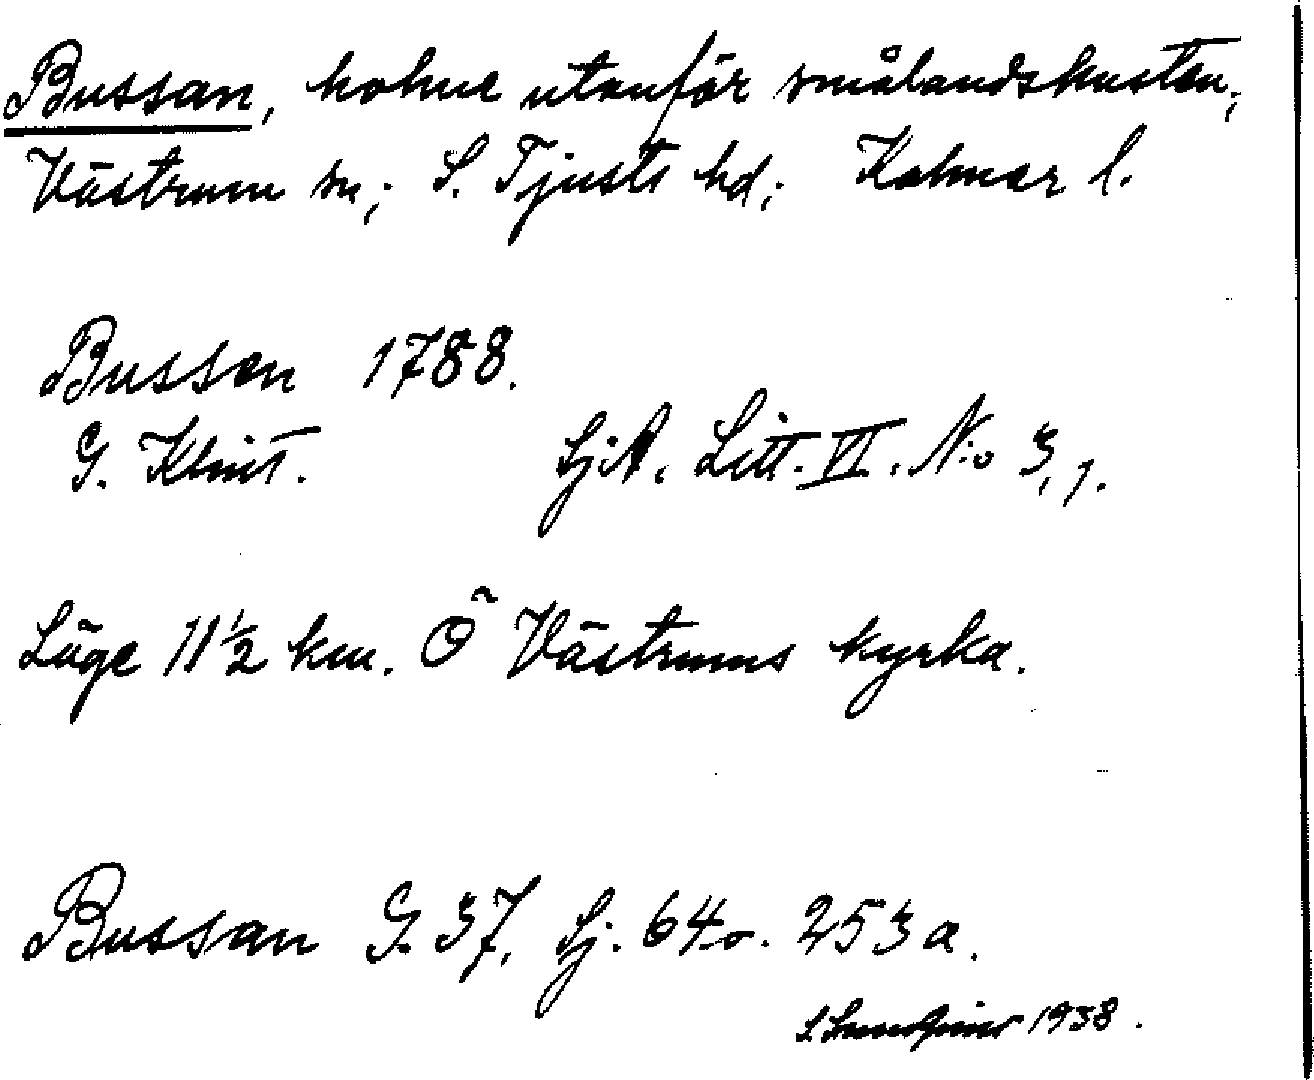 Bussan, holme utanför smålandskusten;
Västrum sn; S. Tjusts hd; Kalmar l.
Bussen 1788.
G. Klint. SjA. Litt. VI. N:o 3,1.
Läge 11 1/2 km. O Västrums kyrka.
Bussan G. 37, Sj. 64 o. 253 a.
1938.